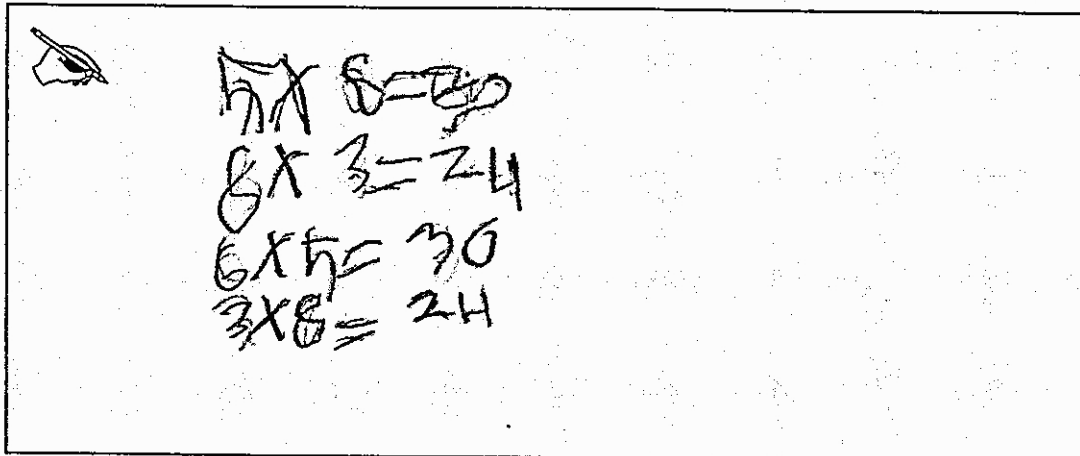 5 X 8 = 40
8 X 3 = 24
6 X 5 = 30
3 X 8 = 24